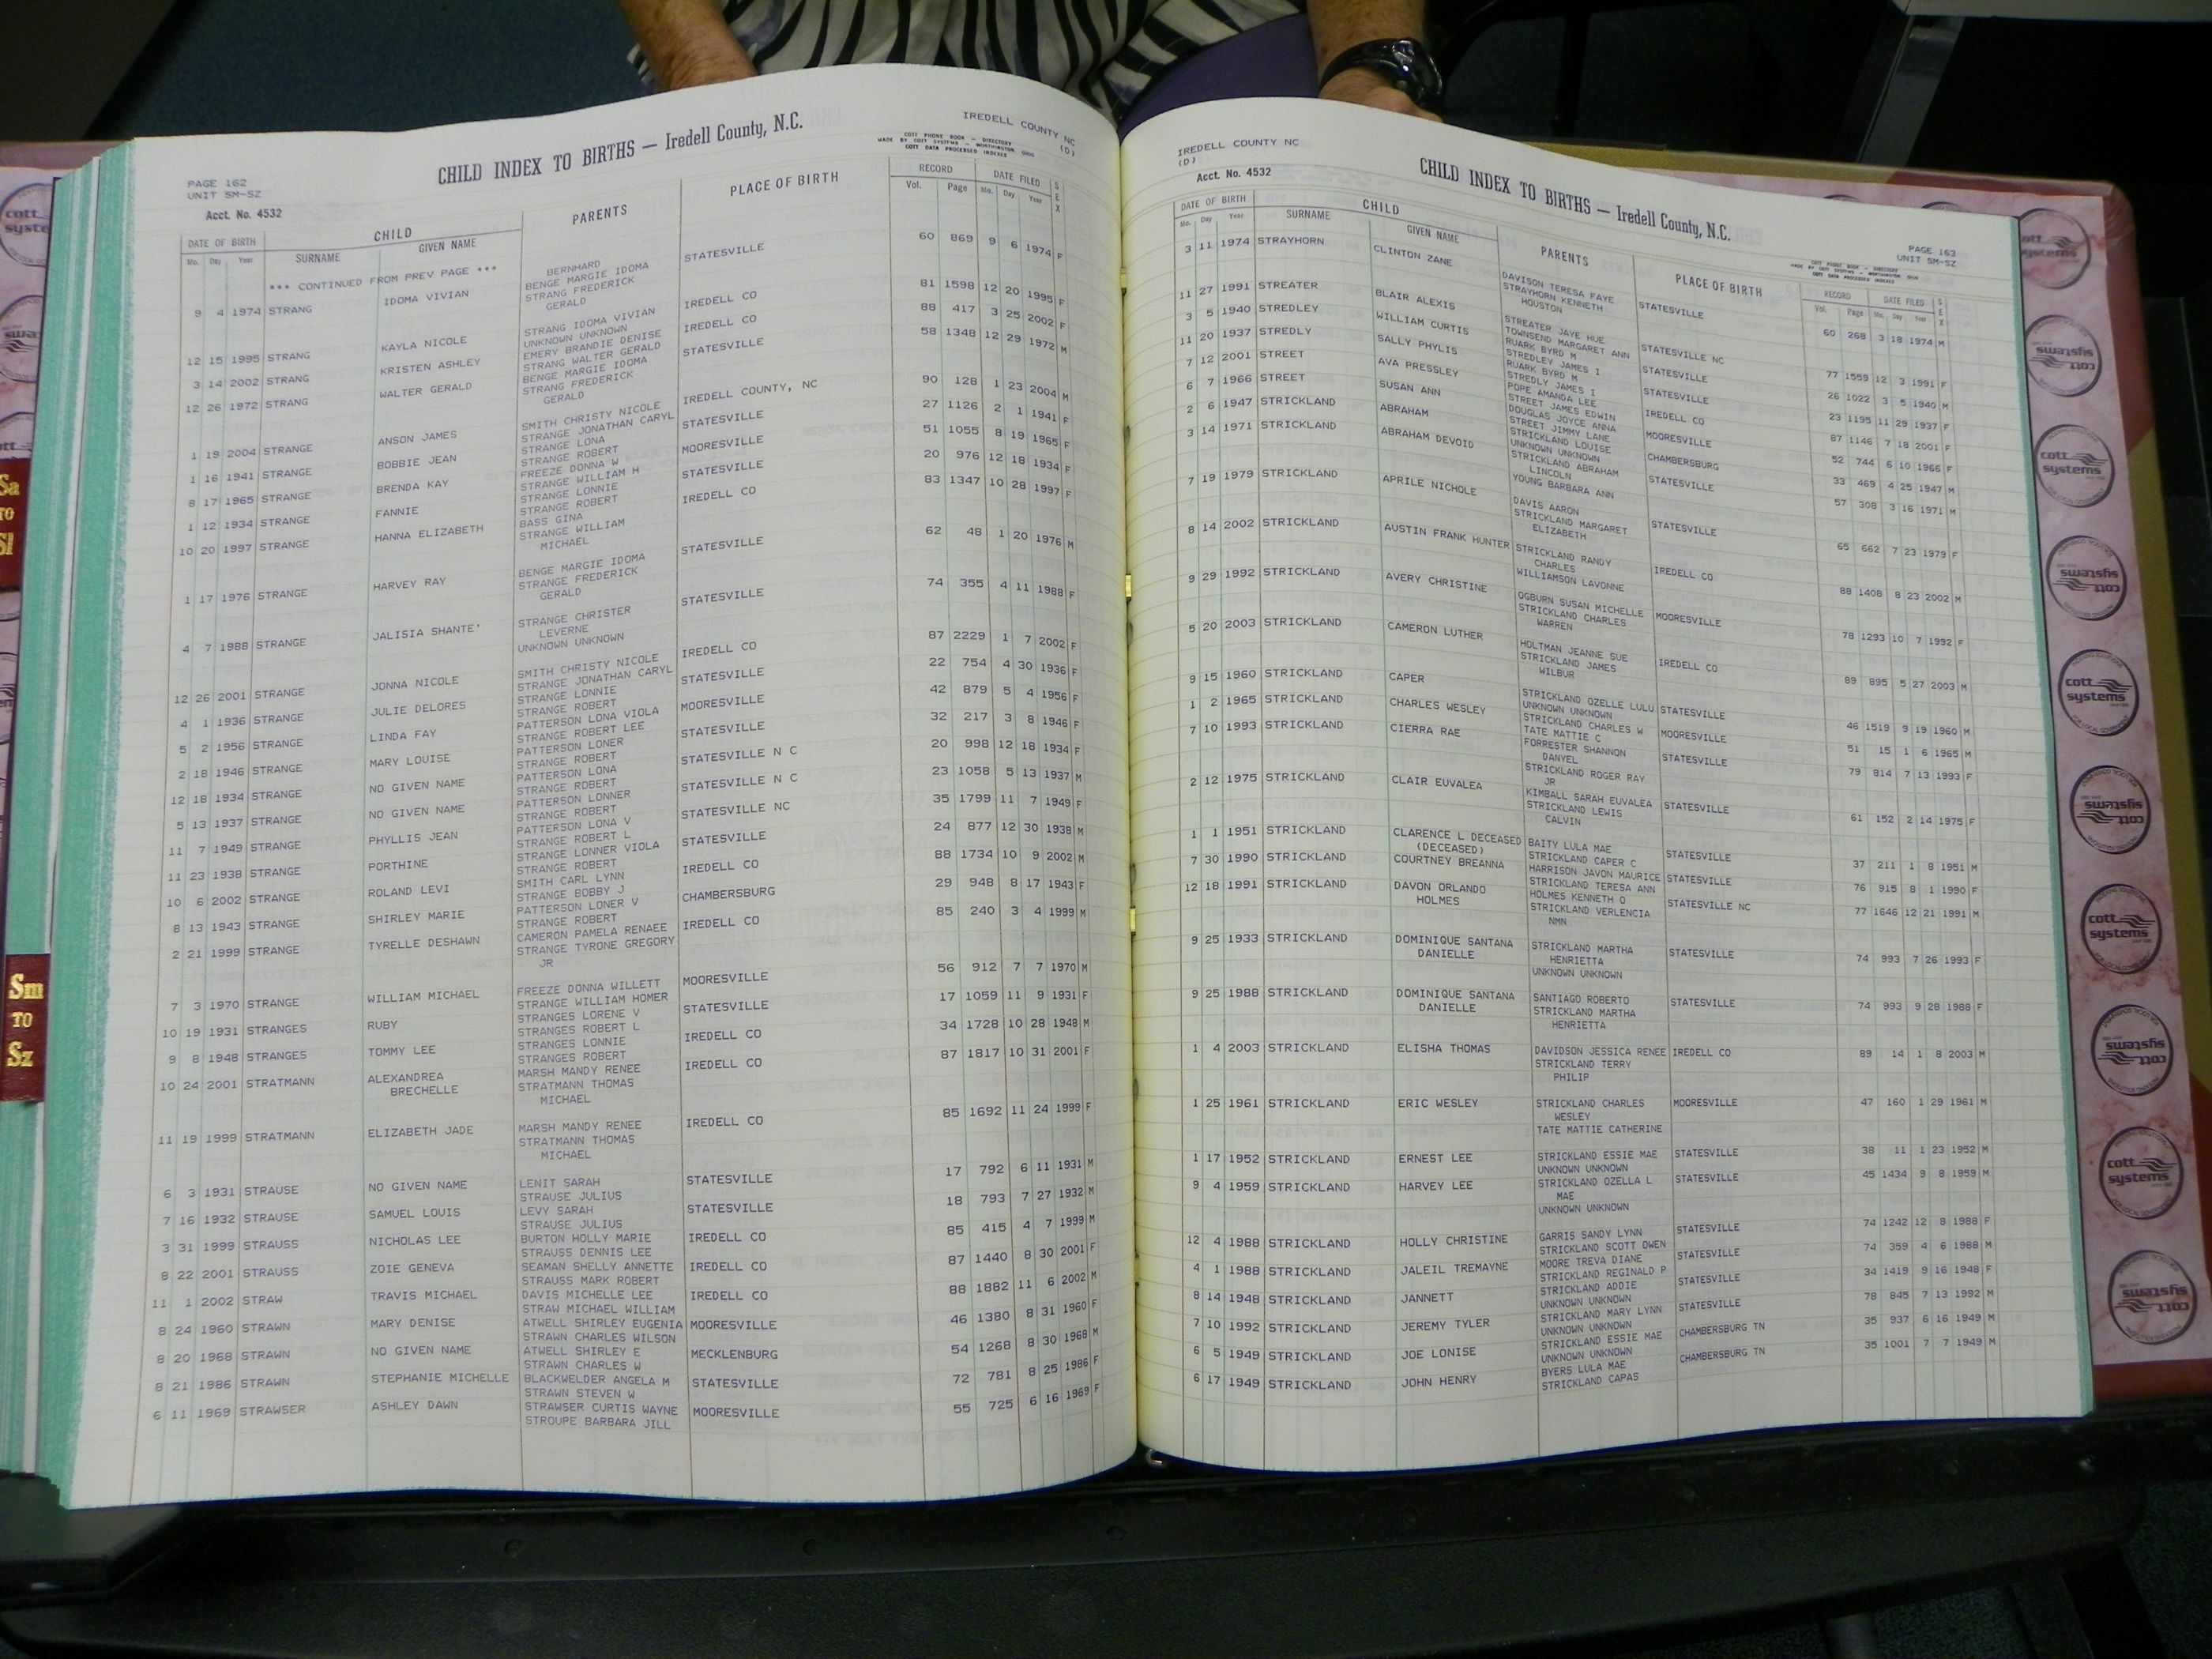 PAGE 162
UNIT SM-SZ
CHILD INDEX TO BIRTHS — Iredell County, N.C.
IREDELL COUNTY NC
(D)
COTT PHONE BOOK — DIRECTORY
MADE BY COTT SYSTEMS — WORTHINGTON, OHIO
COTT DATA PROCESSED INDEXES
Acct. No. 4532
DATE OF BIRTH CHILD PARENTS PLACE OF BIRTH RECORD DATE FILED SEX
Mo. Day Year SURNAME GIVEN NAME Vol. Page Mo. Day Year
*** CONTINUED FROM PREV PAGE ***
BERNHARD
9 4 1974 STRANG IDOMA VIVIAN BENGE MARGIE IDOMA STATESVILLE 60 869 9 6 1974 F
STRANG FREDERICK
GERALD
12 15 1995 STRANG KAYLA NICOLE STRANG IDOMA VIVIAN IREDELL CO 81 1598 12 20 1995 F
UNKNOWN UNKNOWN
3 14 2002 STRANG KRISTEN ASHLEY EMERY BRANDIE DENISE IREDELL CO 88 417 3 25 2002 F
STRANG WALTER GERALD
12 26 1972 STRANG WALTER GERALD BENGE MARGIE IDOMA STATESVILLE 58 1348 12 29 1972 M
STRANG FREDERICK
GERALD
1 19 2004 STRANGE ANSON JAMES SMITH CHRISTY NICOLE IREDELL COUNTY, NC 90 128 1 23 2004 M
STRANGE JONATHAN CARYL
1 16 1941 STRANGE BOBBIE JEAN STRANGE LONA STATESVILLE 27 1126 2 1 1941 F
STRANGE ROBERT
8 17 1965 STRANGE BRENDA KAY FREEZE DONNA W MOORESVILLE 51 1055 8 19 1965 F
STRANGE WILLIAM H
1 12 1934 STRANGE FANNIE STRANGE LONNIE STATESVILLE 20 976 12 18 1934 F
STRANGE ROBERT
10 20 1997 STRANGE HANNA ELIZABETH BASS GINA IREDELL CO 83 1347 10 28 1997 F
STRANGE WILLIAM
MICHAEL
1 17 1976 STRANGE HARVEY RAY BENGE MARGIE IDOMA STATESVILLE 62 48 1 20 1976 M
STRANGE FREDERICK
GERALD
4 7 1988 STRANGE JALISIA SHANTE' STRANGE CHRISTER STATESVILLE 74 355 4 11 1988 F
LEVERNE
UNKNOWN UNKNOWN
12 26 2001 STRANGE JONNA NICOLE SMITH CHRISTY NICOLE IREDELL CO 87 2229 1 7 2002 F
STRANGE JONATHAN CARYL
4 1 1936 STRANGE JULIE DELORES STRANGE LONNIE STATESVILLE 22 754 4 30 1936 F
STRANGE ROBERT
5 2 1956 STRANGE LINDA FAY PATTERSON LONA VIOLA MOORESVILLE 42 879 5 4 1956 F
STRANGE ROBERT LEE
2 18 1946 STRANGE MARY LOUISE PATTERSON LONER STATESVILLE 32 217 3 8 1946 F
STRANGE ROBERT
12 18 1934 STRANGE NO GIVEN NAME PATTERSON LONA STATESVILLE N C 20 998 12 18 1934 F
STRANGE ROBERT
5 13 1937 STRANGE NO GIVEN NAME PATTERSON LONNER STATESVILLE N C 23 1058 5 13 1937 M
STRANGE ROBERT
11 7 1949 STRANGE PHYLLIS JEAN PATTERSON LONA V STATESVILLE NC 35 1799 11 7 1949 F
STRANGE ROBERT L
11 23 1938 STRANGE PORTHINE STRANGE LONNER VIOLA STATESVILLE 24 877 12 30 1938 M
STRANGE ROBERT
10 6 2002 STRANGE ROLAND LEVI SMITH CARL LYNN IREDELL CO 88 1734 10 9 2002 M
STRANGE BOBBY J
8 13 1943 STRANGE SHIRLEY MARIE PATTERSON LONER V CHAMBERSBURG 29 948 8 17 1943 F
STRANGE ROBERT
2 21 1999 STRANGE TYRELLE DESHAWN CAMERON PAMELA RENAEE IREDELL CO 85 240 3 4 1999 M
STRANGE TYRONE GREGORY
JR
7 3 1970 STRANGE WILLIAM MICHAEL FREEZE DONNA WILLETT MOORESVILLE 56 912 7 7 1970 M
STRANGE WILLIAM HOMER
10 19 1931 STRANGES RUBY STRANGES LORENE V STATESVILLE 17 1059 11 9 1931 F
STRANGES ROBERT L
9 8 1948 STRANGES TOMMY LEE STRANGES LONNIE IREDELL CO 34 1728 10 28 1948 M
STRANGES ROBERT
10 24 2001 STRATMANN ALEXANDREA MARSH MANDY RENEE IREDELL CO 87 1817 10 31 2001 F
BRECHELLE STRATMANN THOMAS
MICHAEL
11 19 1999 STRATMANN ELIZABETH JADE MARSH MANDY RENEE IREDELL CO 85 1692 11 24 1999 F
STRATMANN THOMAS
MICHAEL
6 3 1931 STRAUSE NO GIVEN NAME LENIT SARAH STATESVILLE 17 792 6 11 1931 M
STRAUSE JULIUS
7 16 1932 STRAUSE SAMUEL LOUIS LEVY SARAH STATESVILLE 18 793 7 27 1932 M
STRAUSE JULIUS
3 31 1999 STRAUSS NICHOLAS LEE BURTON HOLLY MARIE IREDELL CO 85 415 4 7 1999 M
STRAUSS DENNIS LEE
8 22 2001 STRAUSS ZOIE GENEVA SEAMAN SHELLY ANNETTE IREDELL CO 87 1440 8 30 2001 F
STRAUSS MARK ROBERT
11 1 2002 STRAW TRAVIS MICHAEL DAVIS MICHELLE LEE IREDELL CO 88 1882 11 6 2002 M
STRAW MICHAEL WILLIAM
8 24 1960 STRAWN MARY DENISE ATWELL SHIRLEY EUGENIA MOORESVILLE 46 1380 8 31 1960 F
STRAWN CHARLES WILSON
8 20 1968 STRAWN NO GIVEN NAME ATWELL SHIRLEY E MECKLENBURG 54 1268 8 30 1968 M
STRAWN CHARLES W
8 21 1986 STRAWN STEPHANIE MICHELLE BLACKWELDER ANGELA M STATESVILLE 72 781 8 25 1986 F
STRAWN STEVEN W
6 11 1969 STRAWSER ASHLEY DAWN STRAWSER CURTIS WAYNE MOORESVILLE 55 725 6 16 1969 F
STROUPE BARBARA JILL
IREDELL COUNTY NC
(D)
Acct. No. 4532
CHILD INDEX TO BIRTHS — Iredell County, N.C.
PAGE 163
UNIT SM-SZ
COTT PHONE BOOK — DIRECTORY
MADE BY COTT SYSTEMS — WORTHINGTON, OHIO
COTT DATA PROCESSED INDEXES
DATE OF BIRTH CHILD PARENTS PLACE OF BIRTH RECORD DATE FILED SEX
Mo. Day Year SURNAME GIVEN NAME Vol. Page Mo. Day Year
3 11 1974 STRAYHORN CLINTON ZANE DAVISON TERESA FAYE STATESVILLE 60 268 3 18 1974 M
STRAYHORN KENNETH
HOUSTON
11 27 1991 STREATER BLAIR ALEXIS STREATER JAYE HUE STATESVILLE NC 77 1559 12 3 1991 F
TOWNSEND MARGARET ANN
3 5 1940 STREDLEY WILLIAM CURTIS RUARK BYRD M STATESVILLE 26 1022 3 5 1940 M
STREDLEY JAMES I
11 20 1937 STREDLY SALLY PHYLIS RUARK BYRD M STATESVILLE 23 1195 11 29 1937 F
STREDLY JAMES I
7 12 2001 STREET AVA PRESSLEY POPE AMANDA LEE IREDELL CO 87 1146 7 18 2001 F
STREET JAMES EDWIN
6 7 1966 STREET SUSAN ANN DOUGLAS JOYCE ANNA MOORESVILLE 52 744 6 10 1966 F
STREET JIMMY LANE
2 6 1947 STRICKLAND ABRAHAM STRICKLAND LOUISE CHAMBERSBURG 33 469 4 25 1947 M
UNKNOWN UNKNOWN
3 14 1971 STRICKLAND ABRAHAM DEVOID STRICKLAND ABRAHAM STATESVILLE 57 308 3 16 1971 M
LINCOLN
YOUNG BARBARA ANN
7 19 1979 STRICKLAND APRILE NICHOLE DAVIS AARON STATESVILLE 65 662 7 23 1979 F
STRICKLAND MARGARET
ELIZABETH
8 14 2002 STRICKLAND AUSTIN FRANK HUNTER STRICKLAND RANDY IREDELL CO 88 1408 8 23 2002 M
CHARLES
WILLIAMSON LAVONNE
9 29 1992 STRICKLAND AVERY CHRISTINE OGBURN SUSAN MICHELLE MOORESVILLE 78 1293 10 7 1992 F
STRICKLAND CHARLES
WARREN
5 20 2003 STRICKLAND CAMERON LUTHER HOLTMAN JEANNE SUE IREDELL CO 89 895 5 27 2003 M
STRICKLAND JAMES
WILBUR
9 15 1960 STRICKLAND CAPER STRICKLAND OZELLE LULU STATESVILLE 46 1519 9 19 1960 M
UNKNOWN UNKNOWN
1 2 1965 STRICKLAND CHARLES WESLEY STRICKLAND CHARLES W MOORESVILLE 51 15 1 6 1965 M
TATE MATTIE C
7 10 1993 STRICKLAND CIERRA RAE FORRESTER SHANNON STATESVILLE 79 814 7 13 1993 F
DANYEL
STRICKLAND ROGER RAY
JR
2 12 1975 STRICKLAND CLAIR EUVALEA KIMBALL SARAH EUVALEA STATESVILLE 61 152 2 14 1975 F
STRICKLAND LEWIS
CALVIN
1 1 1951 STRICKLAND CLARENCE L DECEASED BAITY LULA MAE STATESVILLE 37 211 1 8 1951 M
(DECEASED) STRICKLAND CAPER C
7 30 1990 STRICKLAND COURTNEY BREANNA HARRISON JAVON MAURICE STATESVILLE 76 915 8 1 1990 F
STRICKLAND TERESA ANN
12 18 1991 STRICKLAND DAVON ORLANDO HOLMES KENNETH O STATESVILLE NC 77 1646 12 21 1991 M
HOLMES STRICKLAND VERLENCIA
NMN
9 25 1933 STRICKLAND DOMINIQUE SANTANA STRICKLAND MARTHA STATESVILLE 74 993 7 26 1993 F
DANIELLE HENRIETTA
UNKNOWN UNKNOWN
9 25 1988 STRICKLAND DOMINIQUE SANTANA SANTIAGO ROBERTO STATESVILLE 74 993 9 28 1988 F
DANIELLE STRICKLAND MARTHA
HENRIETTA
1 4 2003 STRICKLAND ELISHA THOMAS DAVIDSON JESSICA RENEE IREDELL CO 89 14 1 8 2003 M
STRICKLAND TERRY
PHILIP
1 25 1961 STRICKLAND ERIC WESLEY STRICKLAND CHARLES MOORESVILLE 47 160 1 29 1961 M
WESLEY
TATE MATTIE CATHERINE
1 17 1952 STRICKLAND ERNEST LEE STRICKLAND ESSIE MAE STATESVILLE 38 11 1 23 1952 M
UNKNOWN UNKNOWN
9 4 1959 STRICKLAND HARVEY LEE STRICKLAND OZELLA L STATESVILLE 45 1434 9 8 1959 M
MAE
UNKNOWN UNKNOWN
12 4 1988 STRICKLAND HOLLY CHRISTINE GARRIS SANDY LYNN STATESVILLE 74 1242 12 8 1988 F
STRICKLAND SCOTT OWEN
4 1 1988 STRICKLAND JALEIL TREMAYNE MOORE TREVA DIANE STATESVILLE 74 359 4 6 1988 M
STRICKLAND REGINALD P
8 14 1948 STRICKLAND JANNETT STRICKLAND ADDIE STATESVILLE 34 1419 9 16 1948 F
UNKNOWN UNKNOWN
7 10 1992 STRICKLAND JEREMY TYLER STRICKLAND MARY LYNN STATESVILLE 78 845 7 13 1992 M
UNKNOWN UNKNOWN
6 5 1949 STRICKLAND JOE LONISE STRICKLAND ESSIE MAE CHAMBERSBURG TN 35 937 6 16 1949 M
UNKNOWN UNKNOWN
6 17 1949 STRICKLAND JOHN HENRY BYERS LULA MAE CHAMBERSBURG TN 35 1001 7 7 1949 M
STRICKLAND CAPAS
Sa
TO
Sl
Sm
TO
Sz
cott
systems
cott
systems
cott
systems
cott
systems
cott
systems
cott
systems